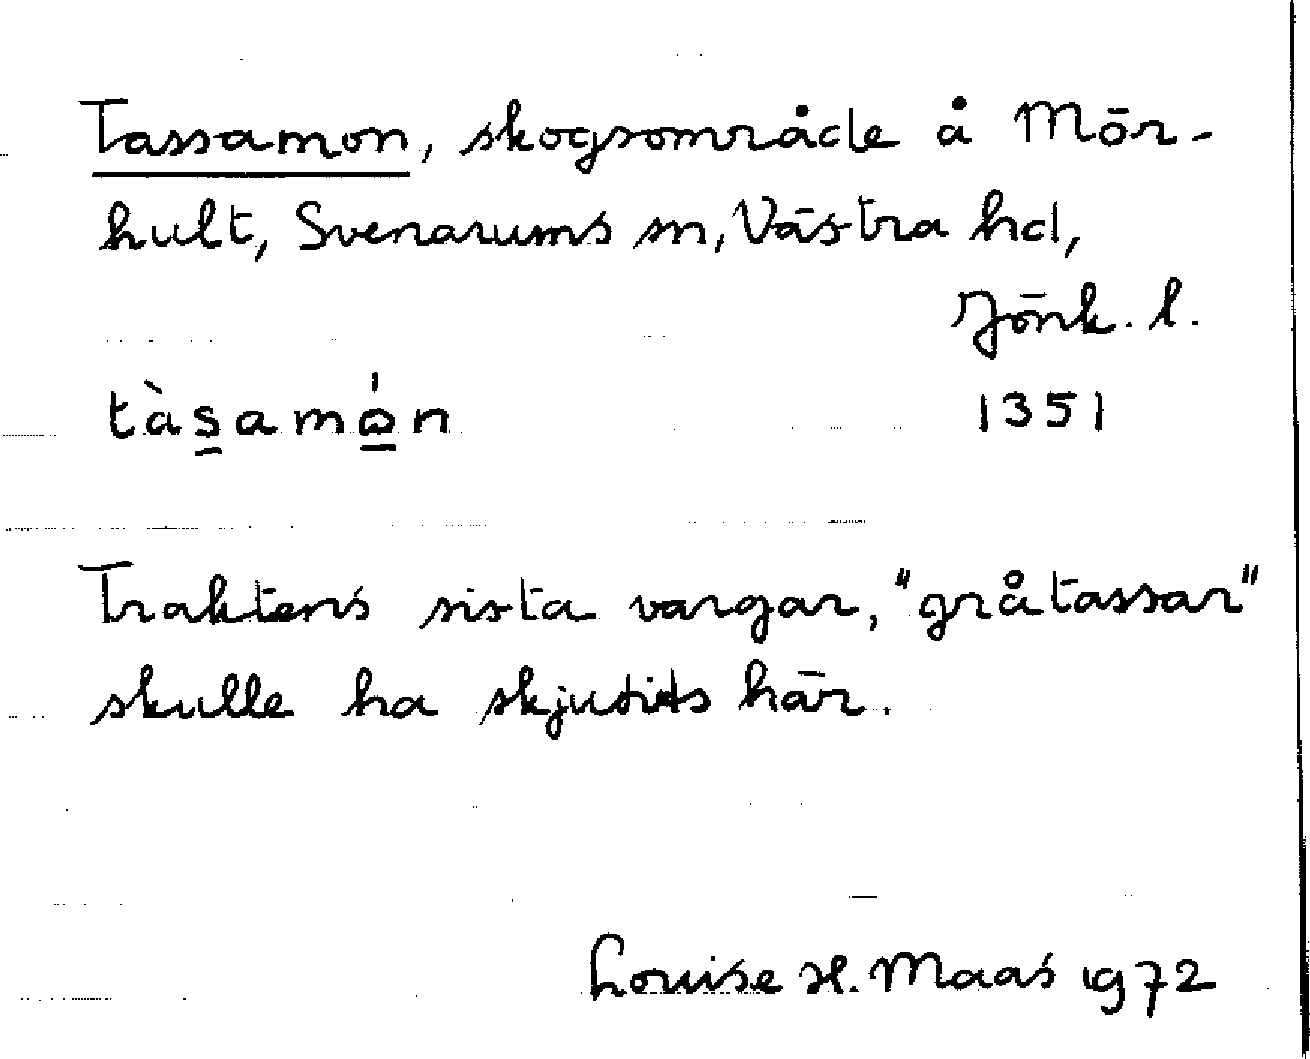 Tassamon, skogsområde å Mör-
hult, Svenarums sn, Västra hd,
Jönk. l.
tàs̠amò̠n 1351
Traktens sista vargar, "gråtassar"
skulle ha skjutits här.
Louise H. Maas 1972